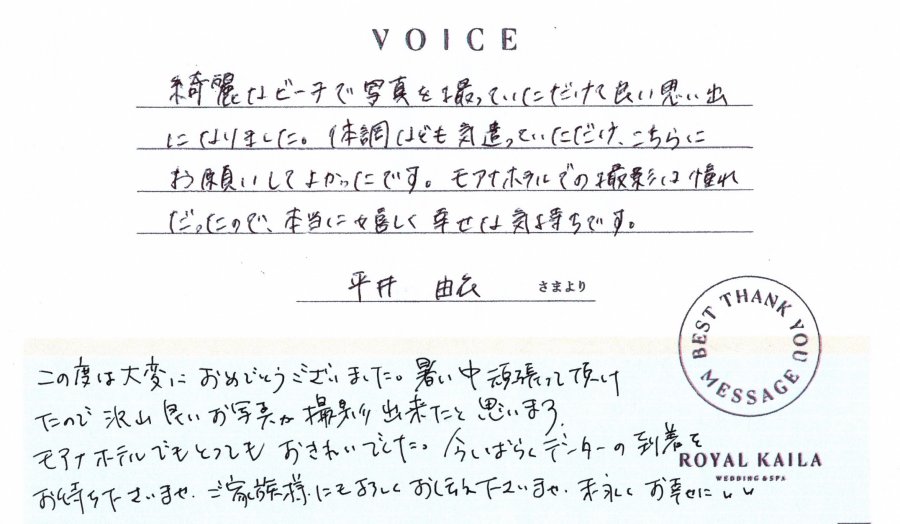 VOICE
綺麗なビーチで写真を撮っていただけて良い思い出
になりました。体調なども気遣っていただけ、こちらに
お願いしてよかったです。モアナホテルでの撮影は憧れ
だったので、本当に嬉しく幸せな気持ちです。
平井 由衣 さまより
BEST THANK YOU MESSAGE
この度は大変に おめでとうございました。暑い中 頑張って頂け
たので 沢山 良い お写真が 撮影 出来たと 思います。
モアナ ホテルでも とっても おきれいでした。今しばらく データーの 到着を
ROYAL KAILA
WEDDING & SPA
お待ち下さいませ. ご家族様にも よろしく お伝え下さいませ. 末永く お幸せに